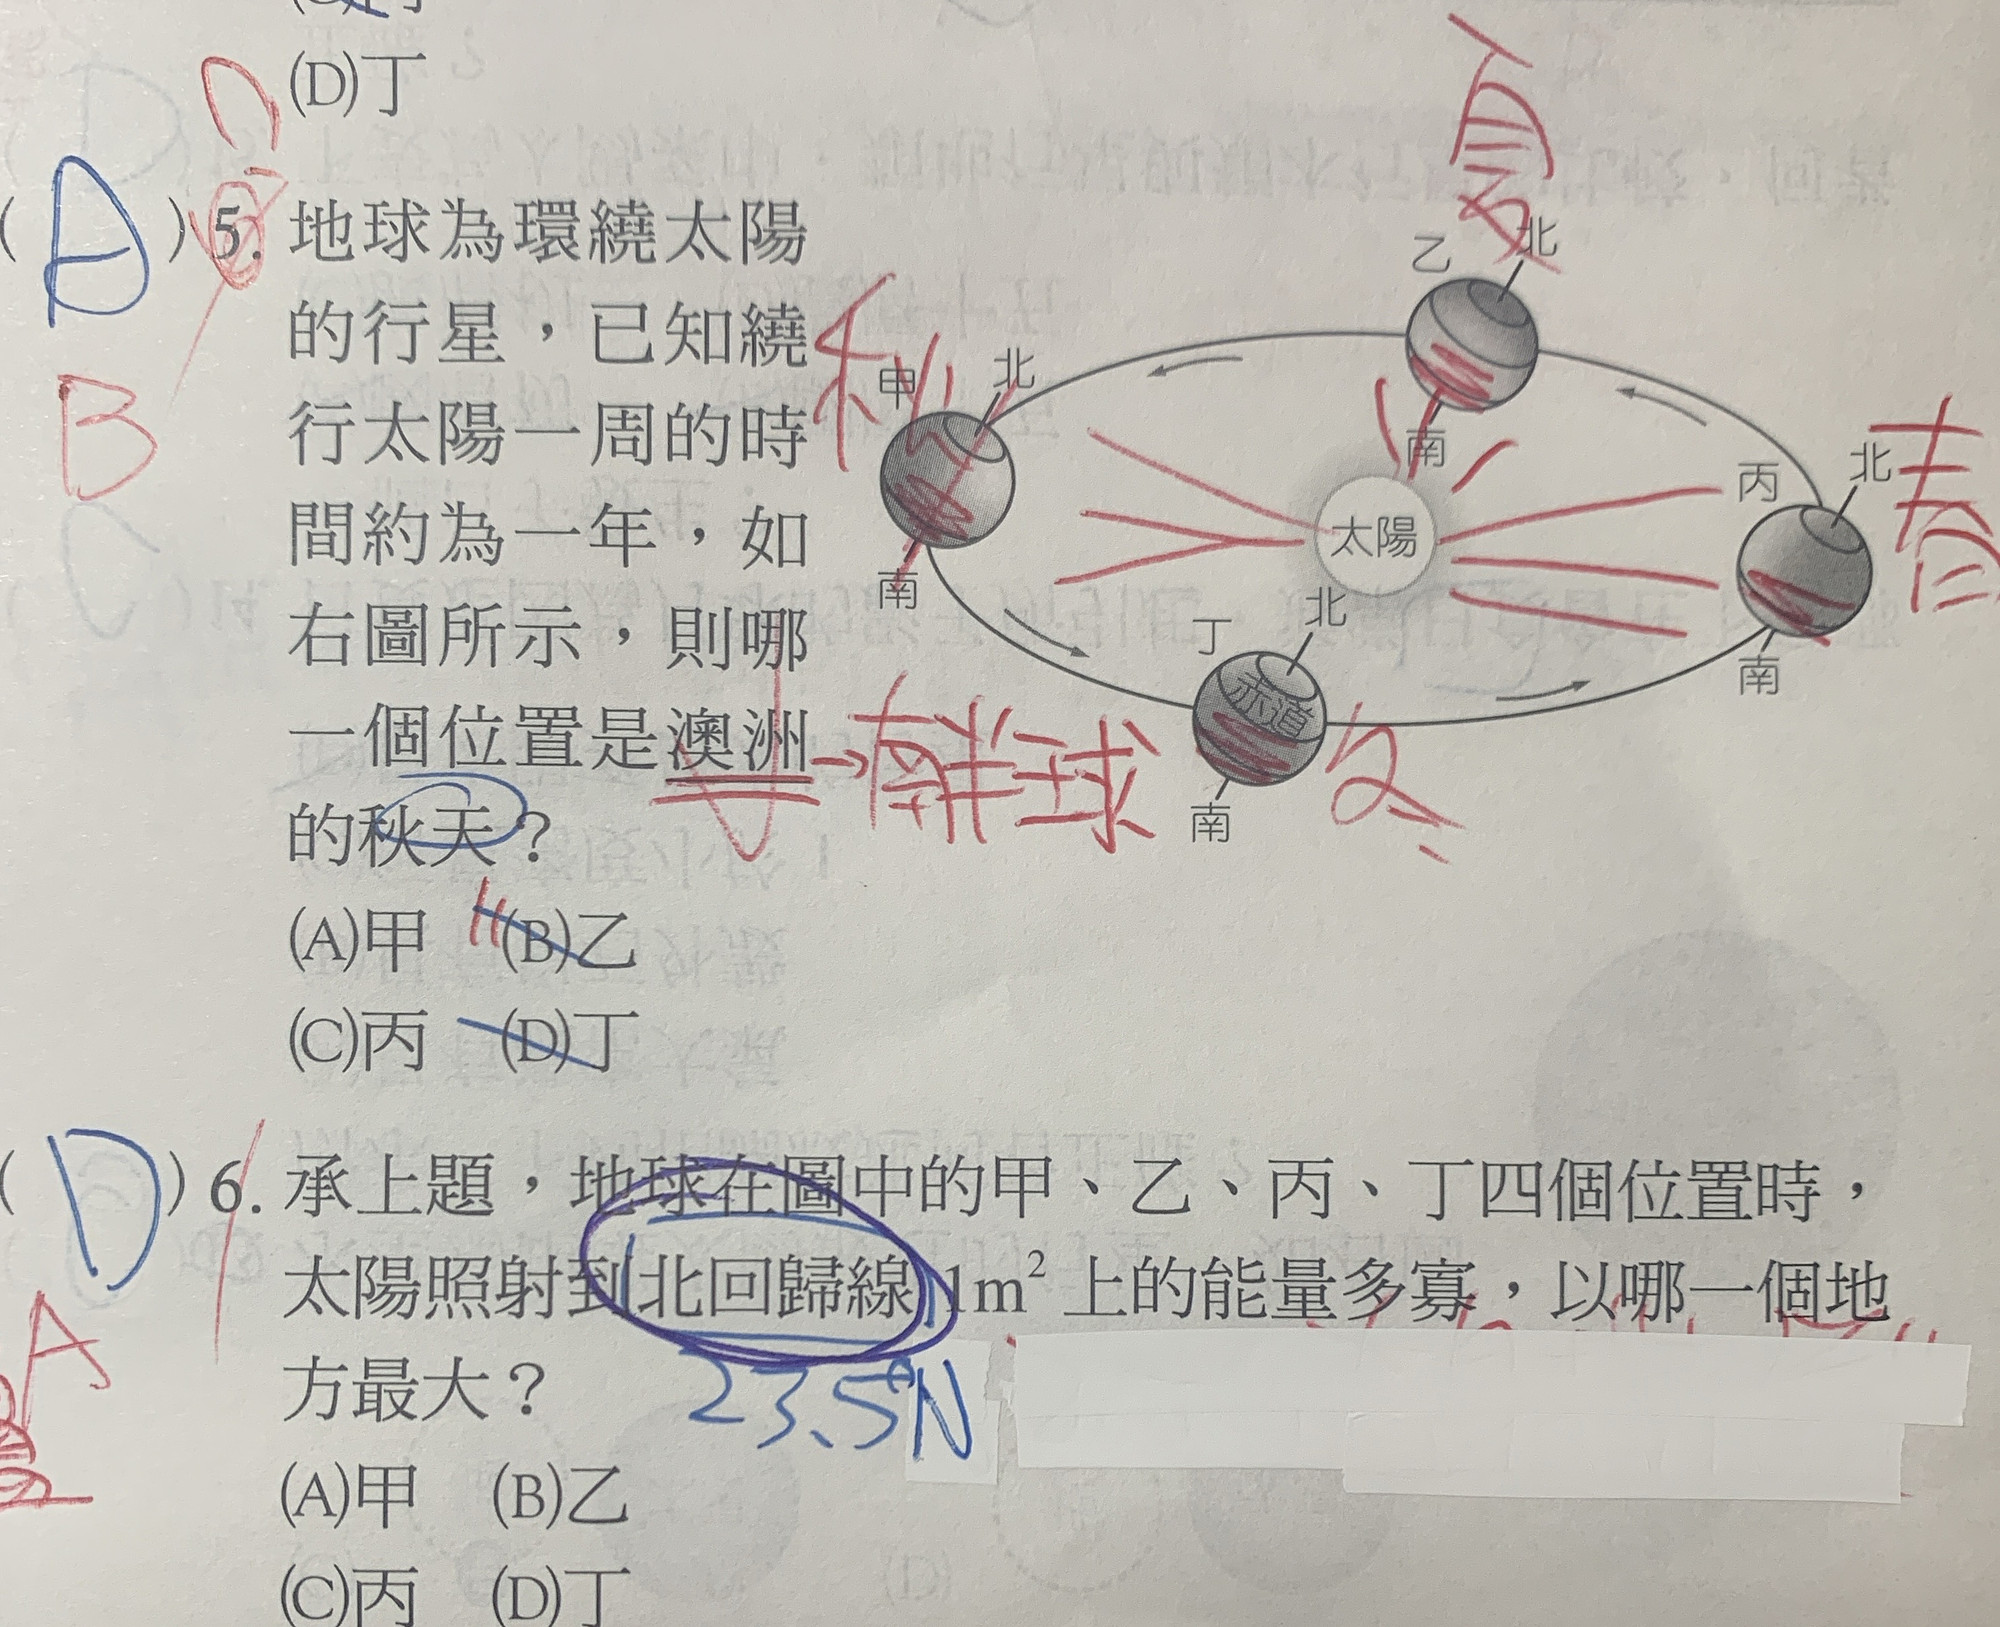 (D)丁
(A)5.地球為環繞太陽
B
的行星，已知繞
行太陽一周的時
間約為一年，如
右圖所示，則哪
一個位置是澳洲→南半球
的秋天？
(A)甲 (B)乙
(C)丙 (D)丁
夏
乙 北
南
秋
甲 北
南
太陽
丙 北
南
春
丁 北
赤道
南
冬
(D)6.承上題，地球在圖中的甲、乙、丙、丁四個位置時，
太陽照射到北回歸線 1m² 上的能量多寡，以哪一個地
方最大？
23.5°N
A
(A)甲 (B)乙
(C)丙 (D)丁